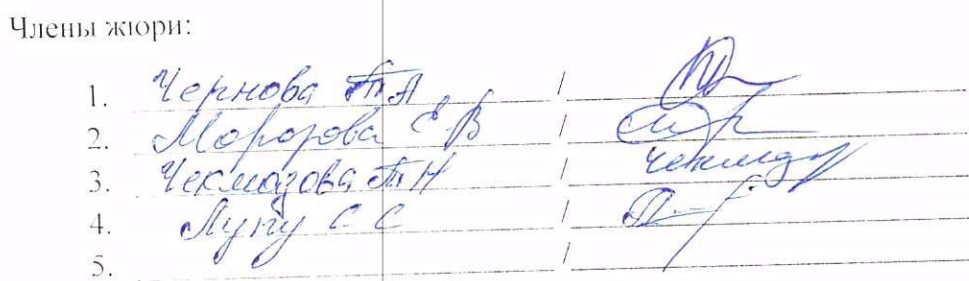 Члены жюри:
1. Чернова Т А /
2. Морозова Е В /
3. Чекмазова Т Н /
4. Лупу С С /
5. /